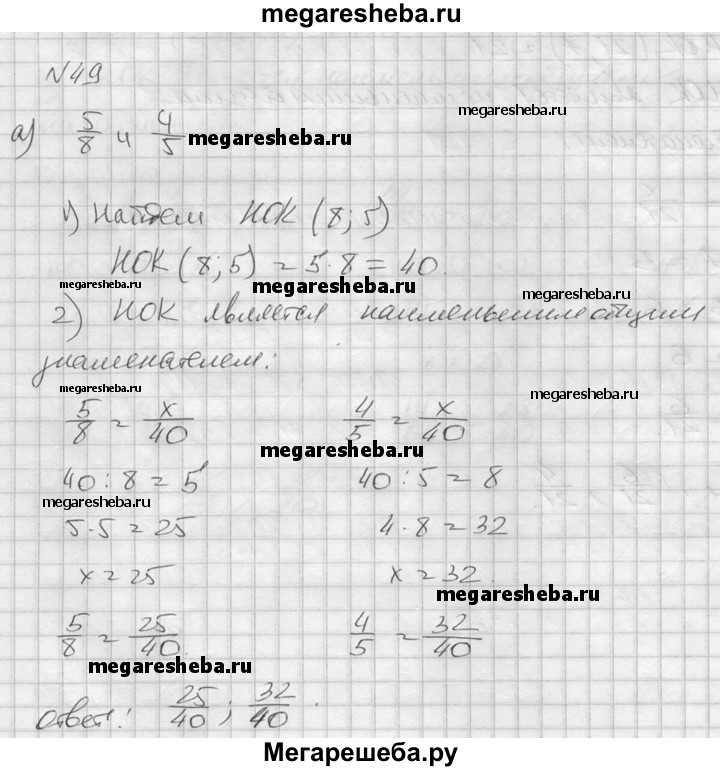 megaresheba.ru
N49
megaresheba.ru
а) 5/8 и 4/5 megaresheba.ru
1) Найдем НОК (8; 5)
НОК (8; 5) = 5·8 = 40.
megaresheba.ru megaresheba.ru megaresheba.ru
2) НОК является наименьшим общим
знаменателем:
megaresheba.ru megaresheba.ru
5/8 = x/40 4/5 = x/40
megaresheba.ru
40 : 8 = 5 40 : 5 = 8
megaresheba.ru
5·5 = 25 4·8 = 32
x = 25 x = 32.
megaresheba.ru
5/8 = 25/40. 4/5 = 32/40
megaresheba.ru
ответ: 25/40; 32/40.
Мегарешеба.ру